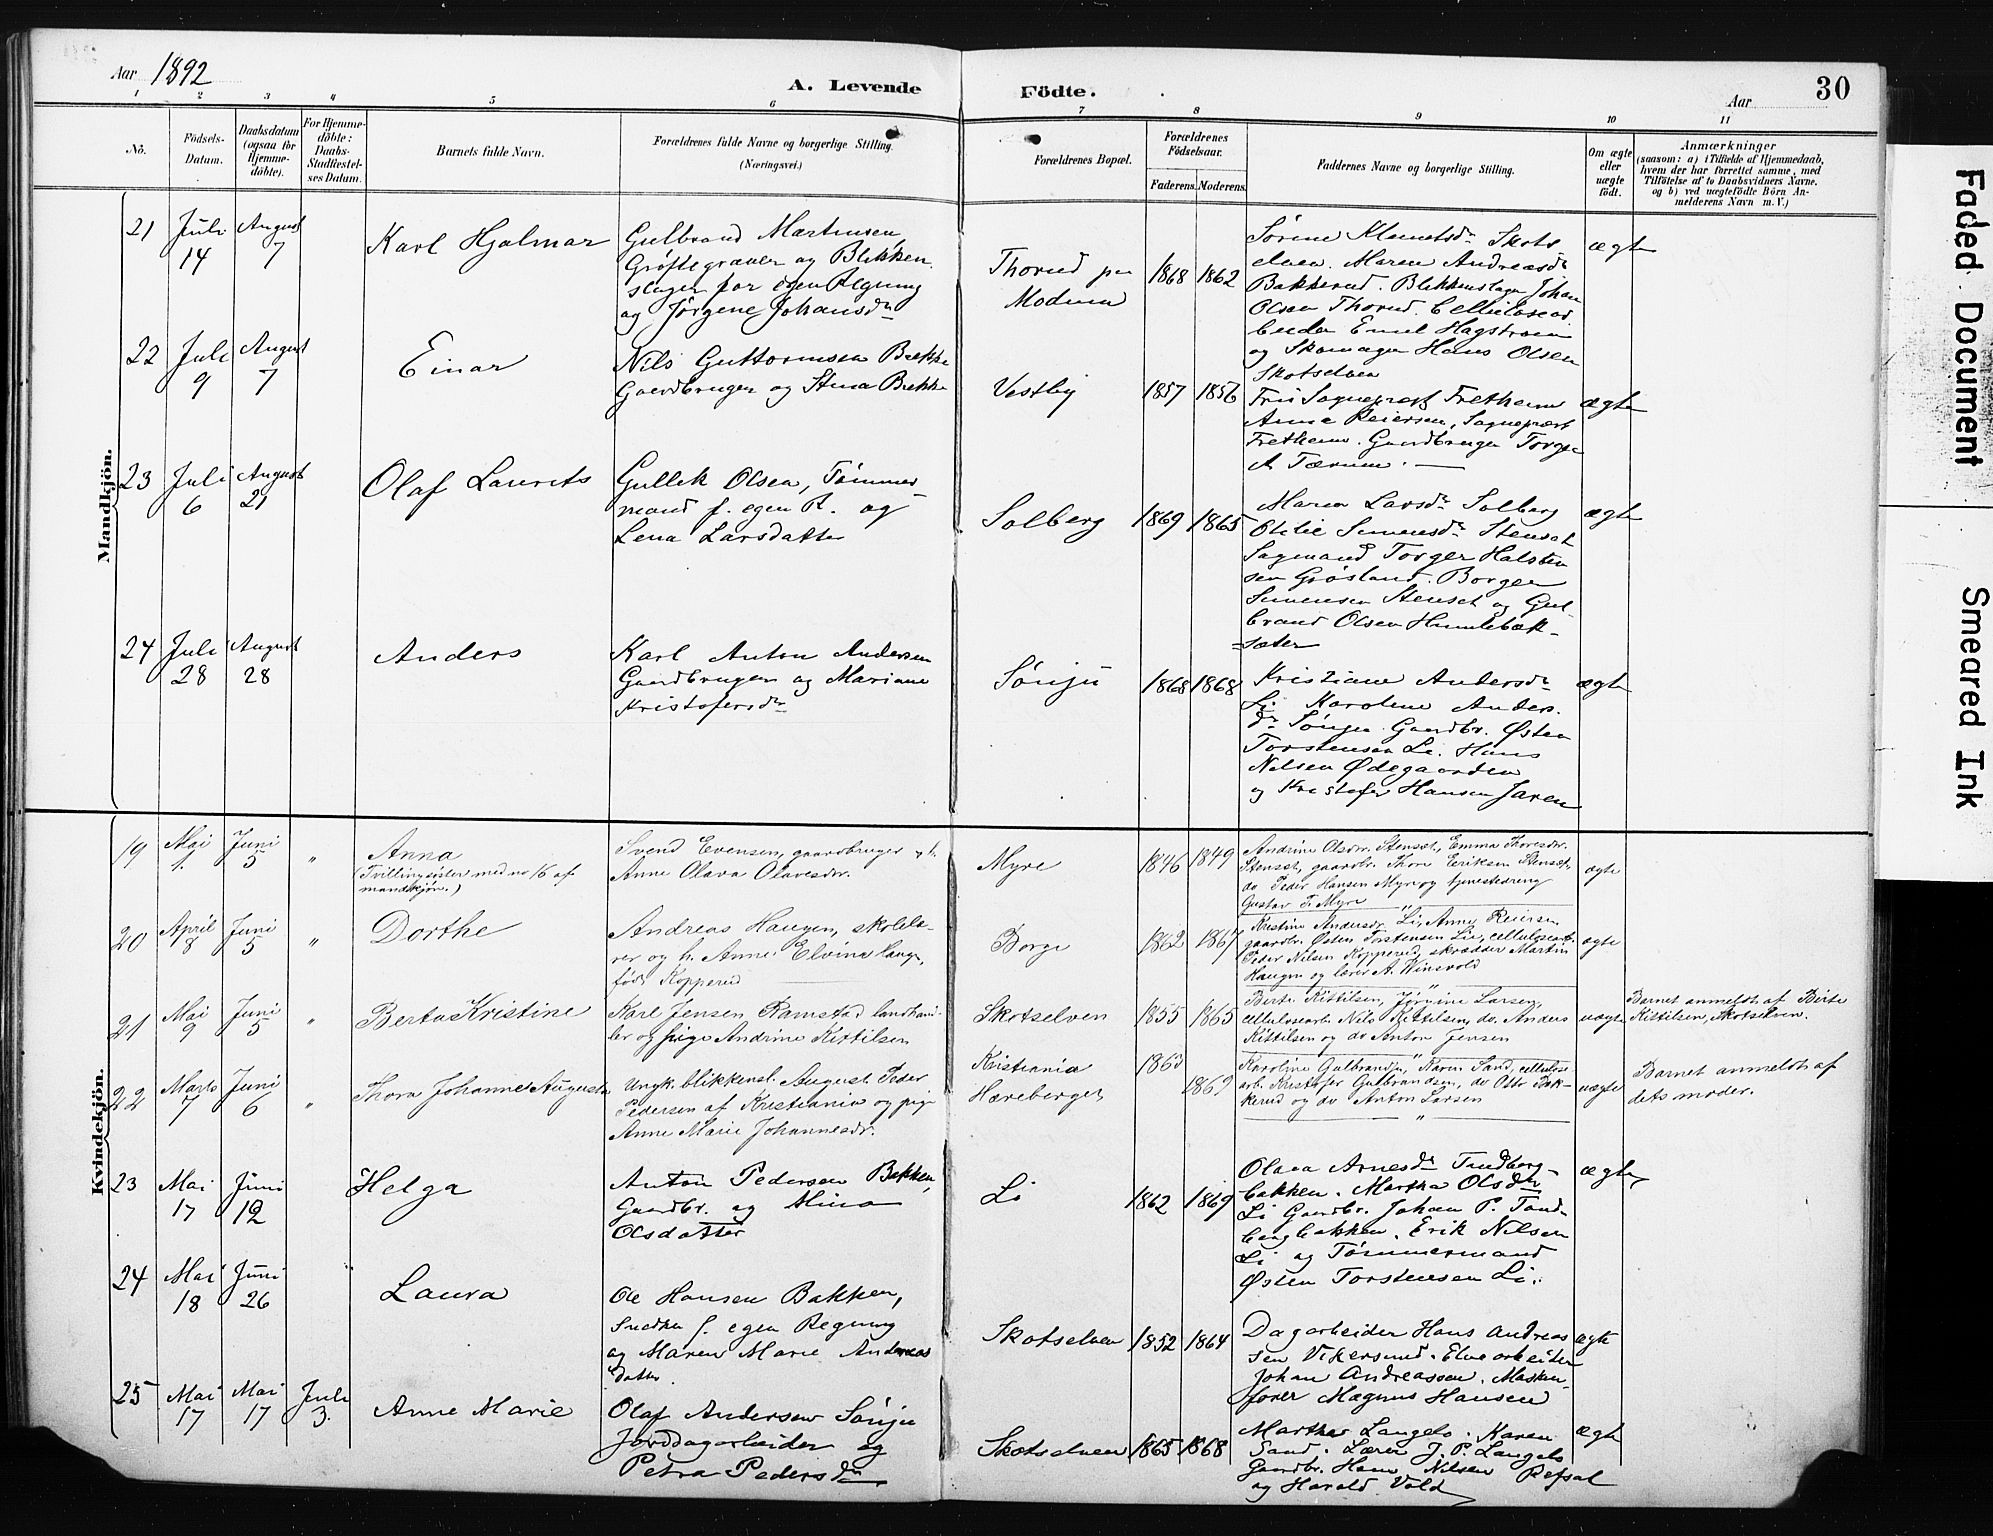 Aar 1892
A. Levende Födte.
Aar
30
1 2 3 4 5 6 7 8 9 10 11
Nô.
Födsels-Datum.
Daabsdatum (ogsaa for Hjemme-döbte).
For Hjemme-döbte: Daabs-Stadfestel-ses Datum.
Barnets fulde Navn.
Forældrenes fulde Navne og borgerlige Stilling. (Næringsvei.)
Forældrenes Bopæl.
Forældrenes Födselsaar.
Faderens. Moderens.
Faddernes Navne og borgerlige Stilling.
Om ægte eller uægte födt.
Anmærkninger
(saasom: a) i Tilfælde af Hjemmedaab,
hvem der har forrettet samme, med
Tilföielse af to Daabsvidners Navne.
og b) ved uægtefödte Börn An-
melderens Navn m. V.)
Mandkjön.
21 Juli 14 August 7
Karl Hjalmar
Gulbrand Martinsen,
Grøftegraver og Blikken
slager for egen Regning
og Jørgene Johansdr
Thorud paa
Modum
1868 1862
Sørine Klemetsdr Skots
elven. Maren Andreasdr
Bakkerud. Blikkenslager Johan
Olsen Thorud. Cellulosear
beider Emil Hagstrøm
og Skomager Hans Olsen
Skotselven
ægte
22 Juli 9 August 7
Einar
Nils Guttormsen Brekke
Gaardbruger og Stina Brekke
Vestby
1857 1856
Fru Sogneprest Fretheim
Anna Reiersen, Sogneprest
Fretheim. Gaardbruger Torger
A. Tærum.
ægte
23 Juli 6 August 21
Olaf Laurits
Gullik Olsen, Tømmer
mand f. egen R. og
Lena Larsdatter
Solberg
1869 1865
Maren Larsdr Solberg
Otilie Simensdr Stenset
Sagmand Torger Halsten
sen Grøsland. Borger
Simensen Stenset og Gul-
brand Olsen Humlebæk-
sæter
ægte
24 Juli 28 August 28
Anders
Karl Anton Andersen
Gaardbruger og Mariane
Kristofersdr
Sønju
1868 1868
Kristiane Andersdr
Li. Karoline Anders.
dr Sønju. Gaardbr. Østen
Torstensen Li. Hans
Nilsen Ødegaarden
og Kristofer Hansen Jaren
ægte
Kvindekjön.
19 Mai 1. Juni 5 "
Anna
(Tvillingsøster med no 16 af
mandkjøn.)
Svend Evensen, gaardbruger og h.
Anne Olava Olavesdr.
Myre
1846 1849
Andrine Olsdr. Stenset, Emma Thoresdr.
Stenset, gaardbr. Thore Eriksen Stenset,
do Peder Hansen Myre og tjenestedreng
Gustav T. Myre
ægte
20 April 8 Juni 5 "
Dorthe
Andreas Haugen, skolelæ-
rer og h. Anne Elvine Haugen,
født Kopperud
Borge
1862 1867
Kristine Andersdr. Li, Anne Reiersen
gaardbr. Østen Torstensen Lie, cellulosearb.
Peder Nilsen Kopperud, skrædder Martin
Haugen og lærer A. Winsvold
ægte
21 Mai 9 Juni 5 "
Berta Kristine
Karl Jensen Ramstad landhand-
ler og pige Andrine Kittilsen
Skotselven
1855 1865
Birte Kittilsen, Jørgine Larsen,
cellulosearb. Nils Kittilsen, do. Anders
Kittilsen og do Anton Jensen
uægte
Barnet anmeldt af Birte
Kittilsen, Skotselven.
22 Marts 7 Juni 6 "
Thora Johanne Augusta
Ungk. blikkensl. August Peder
Pedersen af Kristiania og pige
Anne Marie Johannesdr.
Kristiania
Hæreberget
1869
Karoline Gulbrandsen, Karen Sand, cellulose
arb. Kristofer Gulbrandsen, do Otto Bak-
kerud og do Anton Larsen
"
uægte
Barnet anmeldt af
dets moder.
23 Mai 17 Juni 12
Helga
Anton Pedersen Bakken,
Gaardbr. og Alina
Olsdatter
Li
1862 1869
Olava Arnesdr Tandberg-
bakken. Martha Olsdr
Li Gaardbr. Johan P. Tand-
bergbakken. Erik Nilsen
Li og Tømmermand
Østen Torstensen Li.
ægte
24 Mai 18 Juni 26
Laura
Ole Hansen Bakken,
Snedker f. egen Regning
og Maren Marie Andreas
datter.
Skotselven
1852 1864
Dagarbeider Hans Andreas
sen Vikersund. Elvearbeider
Johan Andreassen. Maskin-
fører Magnus Hansen
ægte
25 Mai 17 Mai 17 Juli 3.
Anne Marie
Olaf Andersen Sønju
Jorddagarbeider og
Petra Pedersdr
Skotselven
1865 1868
Marthea Langelo. Karen
Sand. Lærer J. P. Langelo
Gaardbr. Hans Nilsen Refsal
og Harald Vold
ægte
Faded Document
Smeared Ink